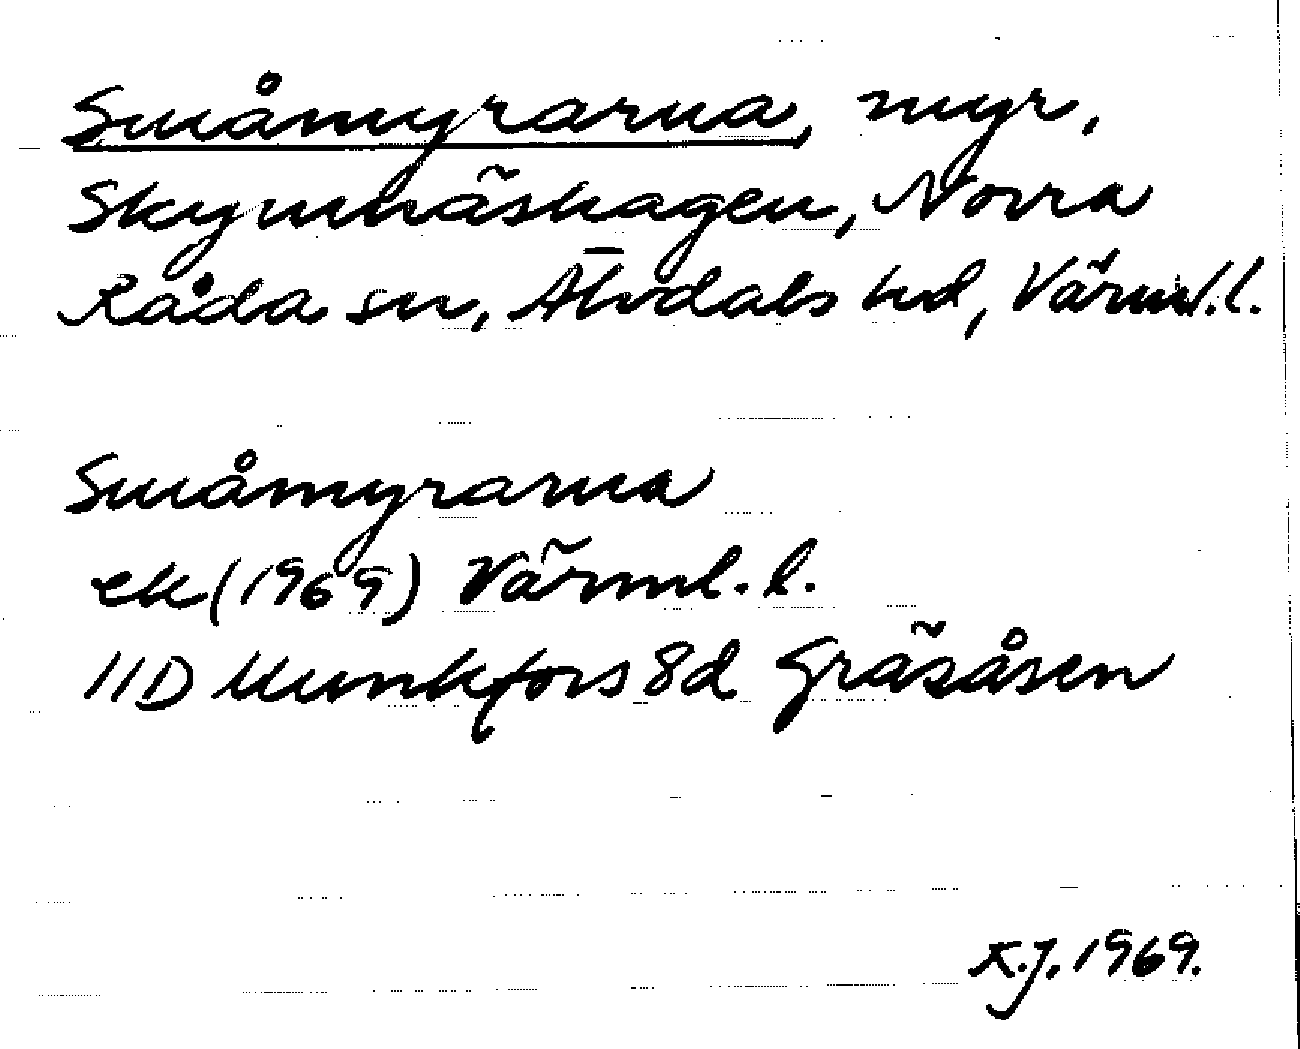 Småmyrarna, myr,
Skymnäshagen, Norra
Råda sn, Älvdals hd, Värml.l.
Småmyrarna
ek (1969) Värml. l.
11D Munkfors 8d Gräsåsen
K.J. 1969.